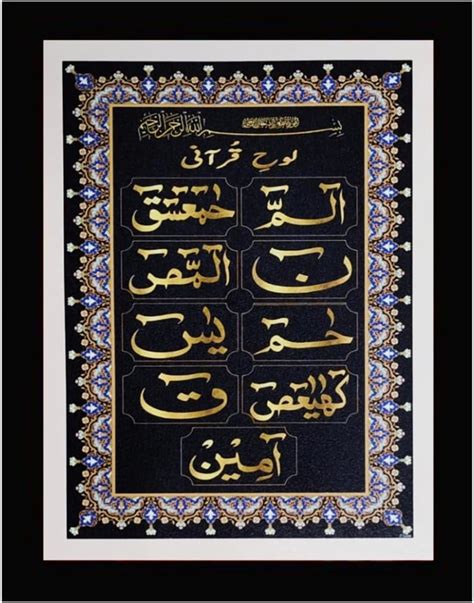 بسم الله الرحمن الرحيم
لوح قرآنی
الٓمّٓ حمٓعٓسٓقٓ
ن الٓمّٓصٓ
حٰمٓ یٰسٓ
کٓھٰیٰعٓصٓ قٓ
آمین